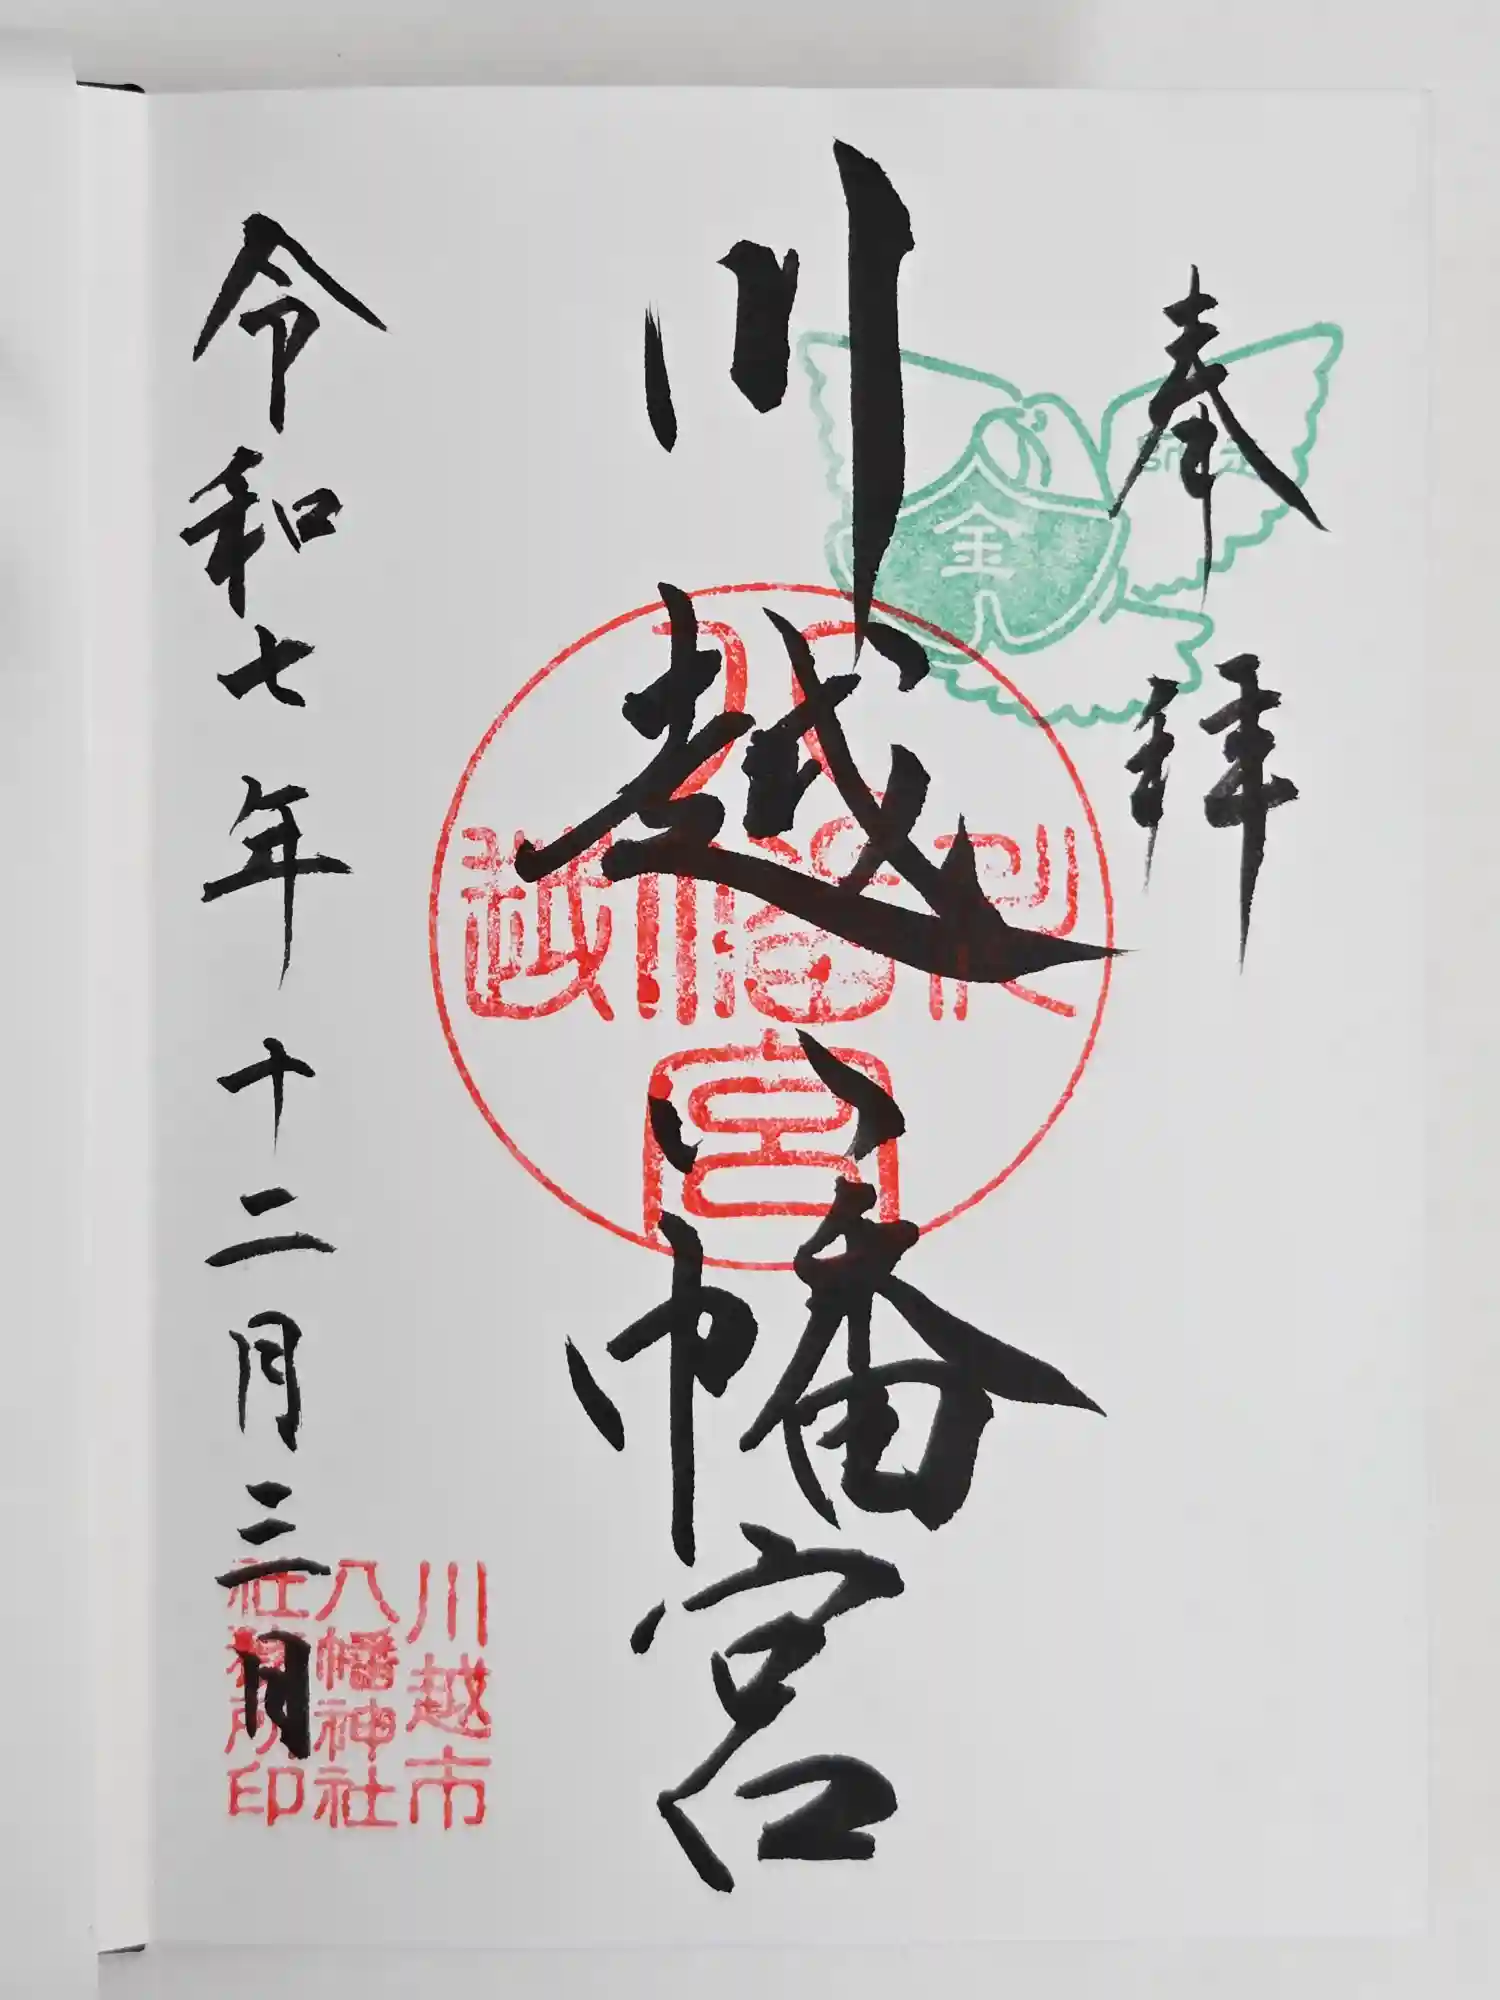 奉拝
金
川越八幡宮
川越市
八幡神社
社務所印
令和七年十二月三日